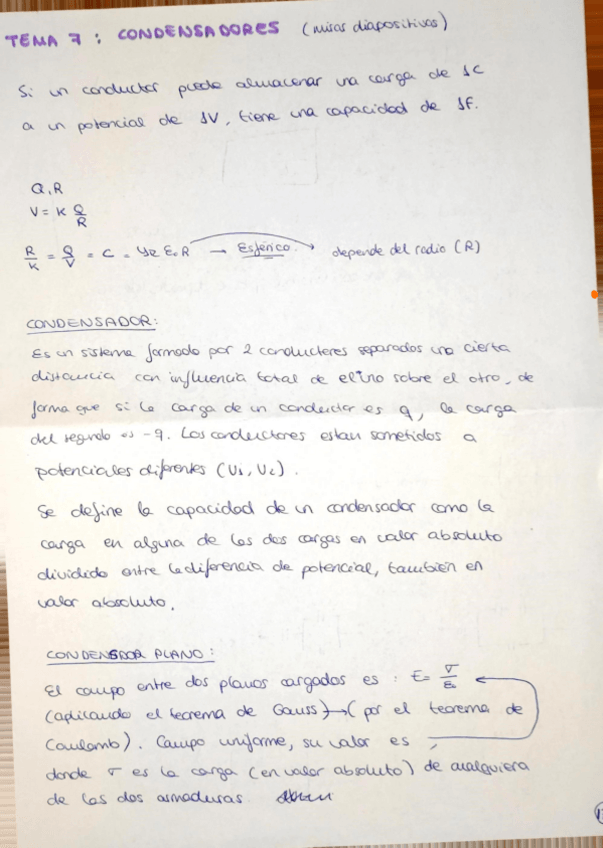 TEMA 7 : CONDENSADORES (miras diapositivas)
Si un conductor puede almacenar una carga de 1C
a un potencial de 1V, tiene una capacidad de 1F.
Q, R
V = K Q/R
R/K = Q/V = C = 4π ε₀ R → Esférico. depende del radio (R)
CONDENSADOR:
Es un sistema formado por 2 conductores separados una cierta
distancia con influencia total de el uno sobre el otro, de
forma que si la carga de un conductor es q, la carga
del segundo es -q. Los conductores estan sometidos a
potenciales diferentes (V₁, V₂).
Se define la capacidad de un condensador como la
carga en alguna de las dos cargas en valor absoluto
dividido entre la diferencia de potencial, también en
valor absoluto.
CONDENSADOR PLANO:
El campo entre dos planos cargados es : E = σ/ε₀
(aplicando el teorema de Gauss) → (por el teorema de
Coulomb). Campo uniforme, su valor es
donde σ es la carga (en valor absoluto) de cualquiera
de las dos armaduras